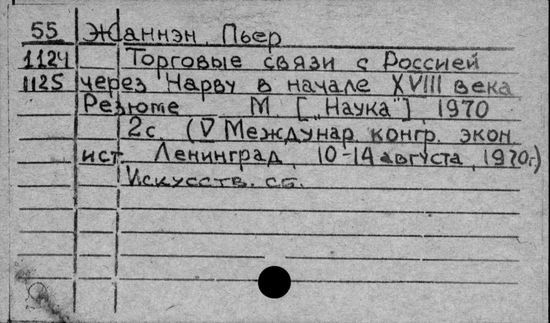 55 Жаннэн, Пьер
1124 Торговые связи с Россией
1125 через Нарву в начале XVIII века
Резюме М. ["Наука"], 1970
2с. (V Междунар. конгр. экон.
ист. Ленинград, 10-14 августа, 1970г.)
Искусств. сб.